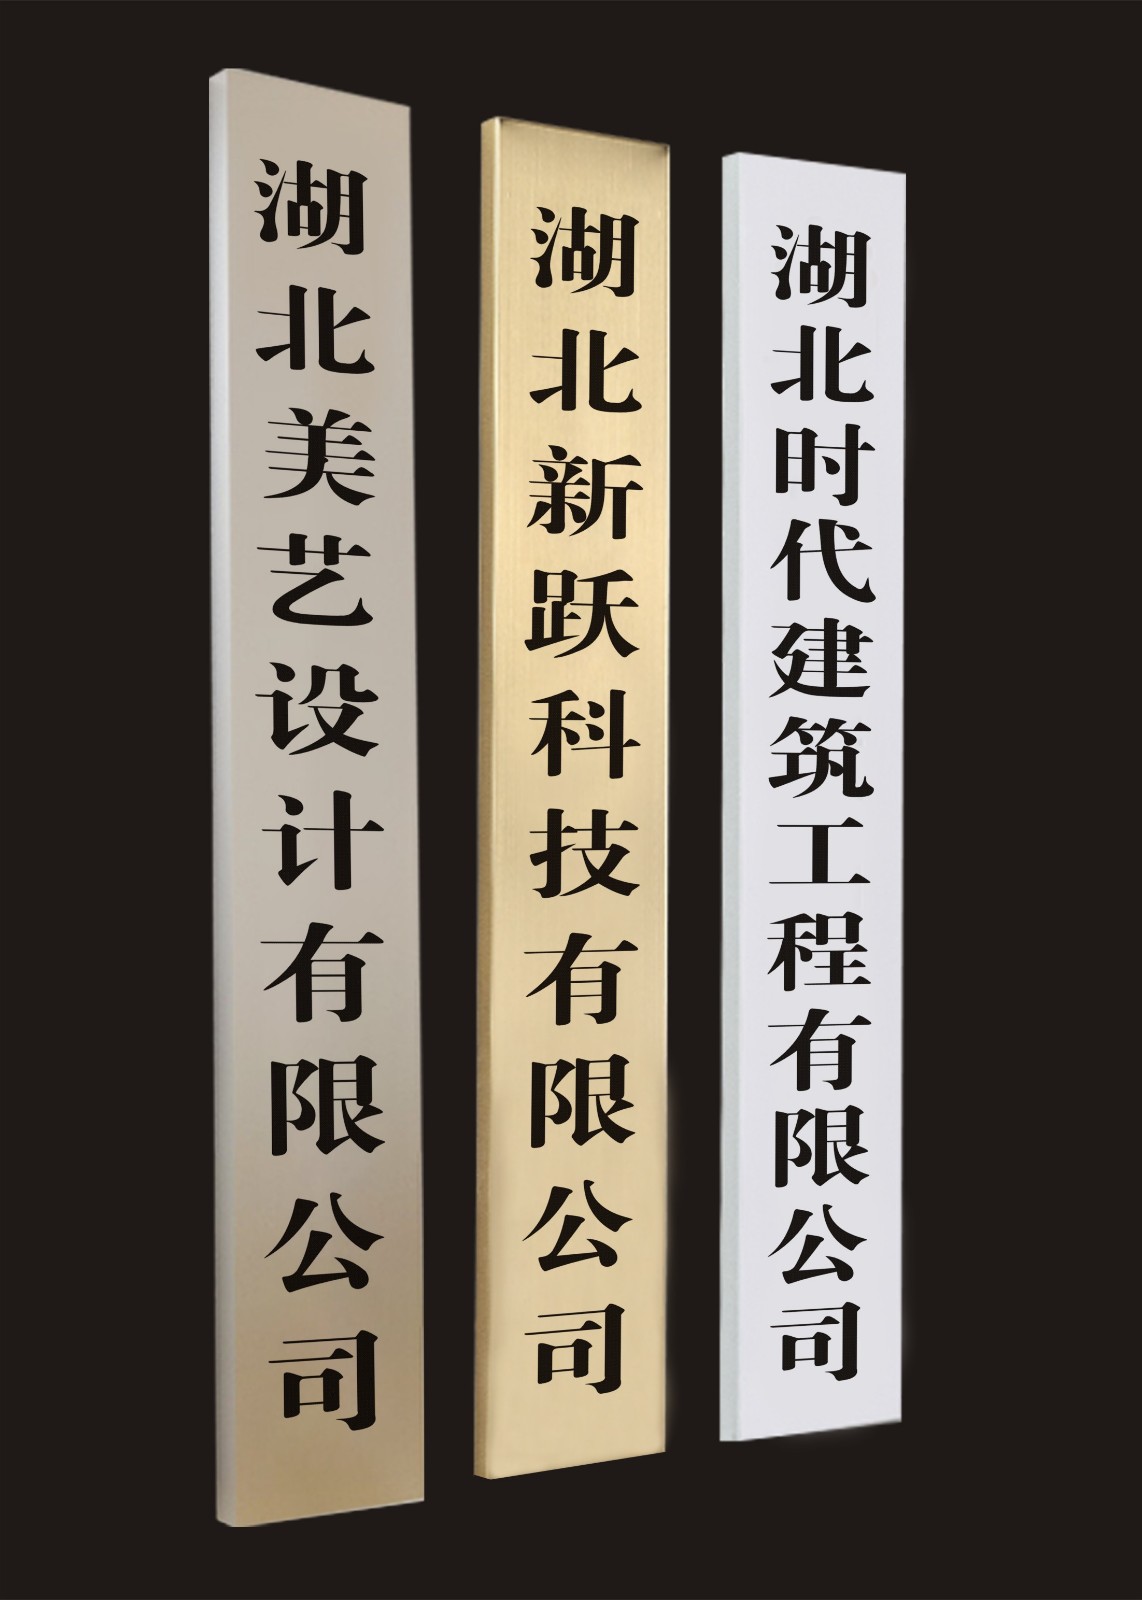 湖北美艺设计有限公司
湖北新跃科技有限公司
湖北时代建筑工程有限公司